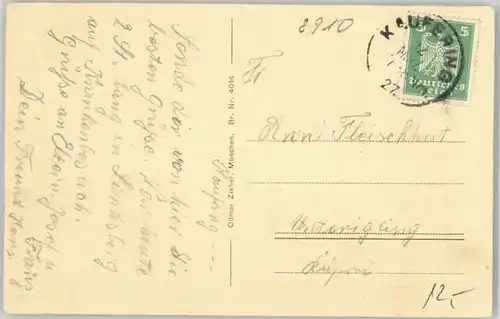 8910
Kaufering
Sende dir von hier die
besten Grüße. War heute
2 St. lang in Landsberg
auf Krankenbesuch.
Grüße an Eltern Josef u
Franz
Dein Freund Hans.
Ottmar Zieher, München. Br. Nr. 4014
KAUFERING
27
5 5
Deutsches
Reich
Fr.
Anni Fleischhut
Unterigling
12,-